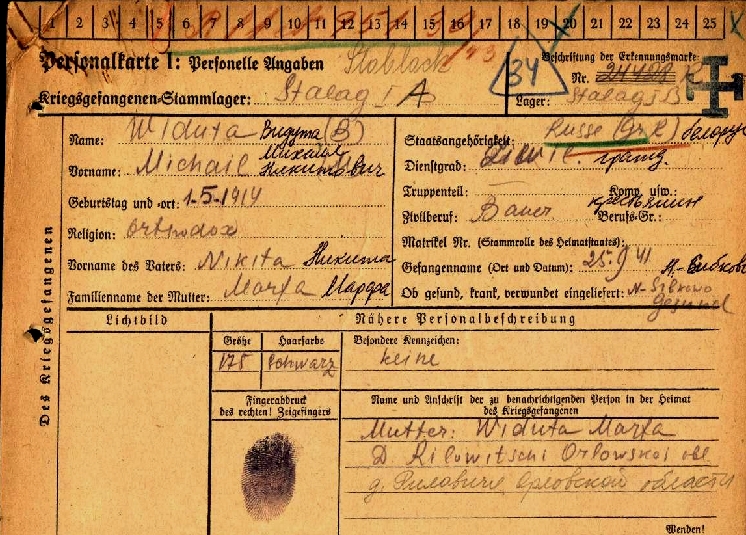 1 2 3 4 5 6 7 8 9 10 11 12 13 14 15 16 17 18 19 20 21 22 23 24 25
Personalkarte I: Personelle Angaben
Stablack
34
Beschriftung der Erkennungsmarke
Nr.
Kriegsgefangenen-Stammlager: Stalag I A
Lager: Stalag I B
Name: Widuta Видута (B)
Staatsangehörigkeit: Russe
Vorname: Michail Михаил Никитович
Dienstgrad:
Truppenteil: Komp. usw.:
Geburtstag und -ort: 1.5.1914
Zivilberuf: Bauer крестьянин Berufs-Gr.:
Religion: Orthodox
Matrikel Nr. (Stammrolle des Heimatstaates):
Vorname des Vaters: Nikita Никита
Gefangenname (Ort und Datum): 25.9.41
Familienname der Mutter: Marfa Марфа
Ob gesund, krank, verwundet eingeliefert: Gesund
Des Kriegsgefangenen
Lichtbild
Nähere Personalbeschreibung
Größe
Haarfarbe
Besondere Kennzeichen:
175
Schwarz
keine
Fingerabdruck
des rechten! Zeigefingers
Name und Anschrift der zu benachrichtigenden Person in der Heimat
des Kriegsgefangenen
Mutter: Widuta Marfa
D. Rilowitschi Orlowskoi obl
д. Рилавичи Орловской области
Wenden!